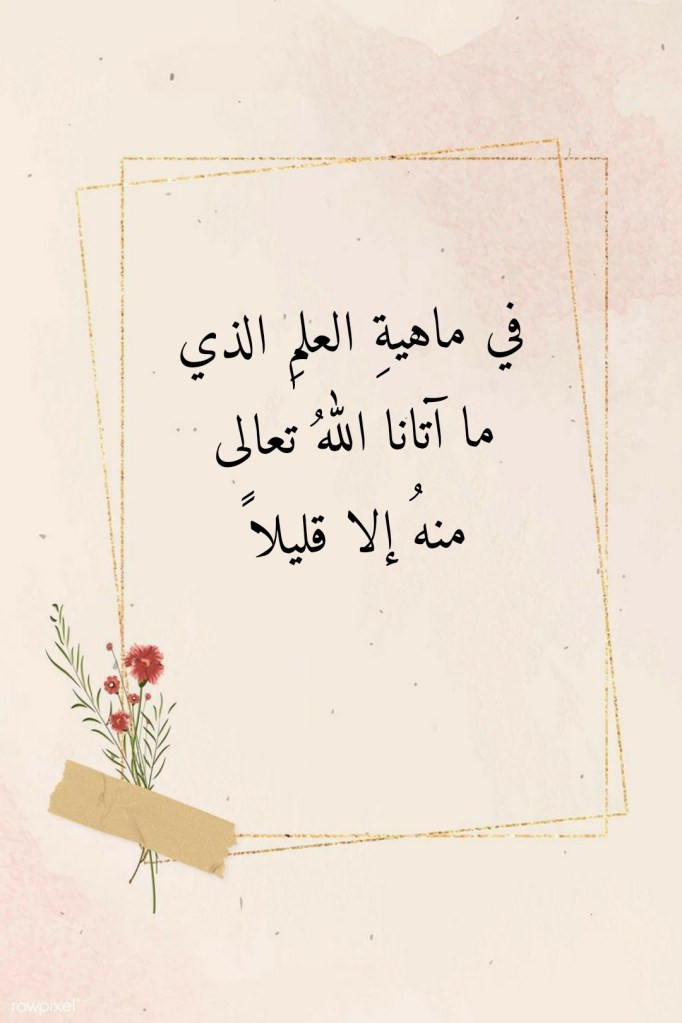 في ماهيةِ العلمِ الذي
ما آتانا اللهُ تعالى
منهُ إلا قليلاً
rawpixel